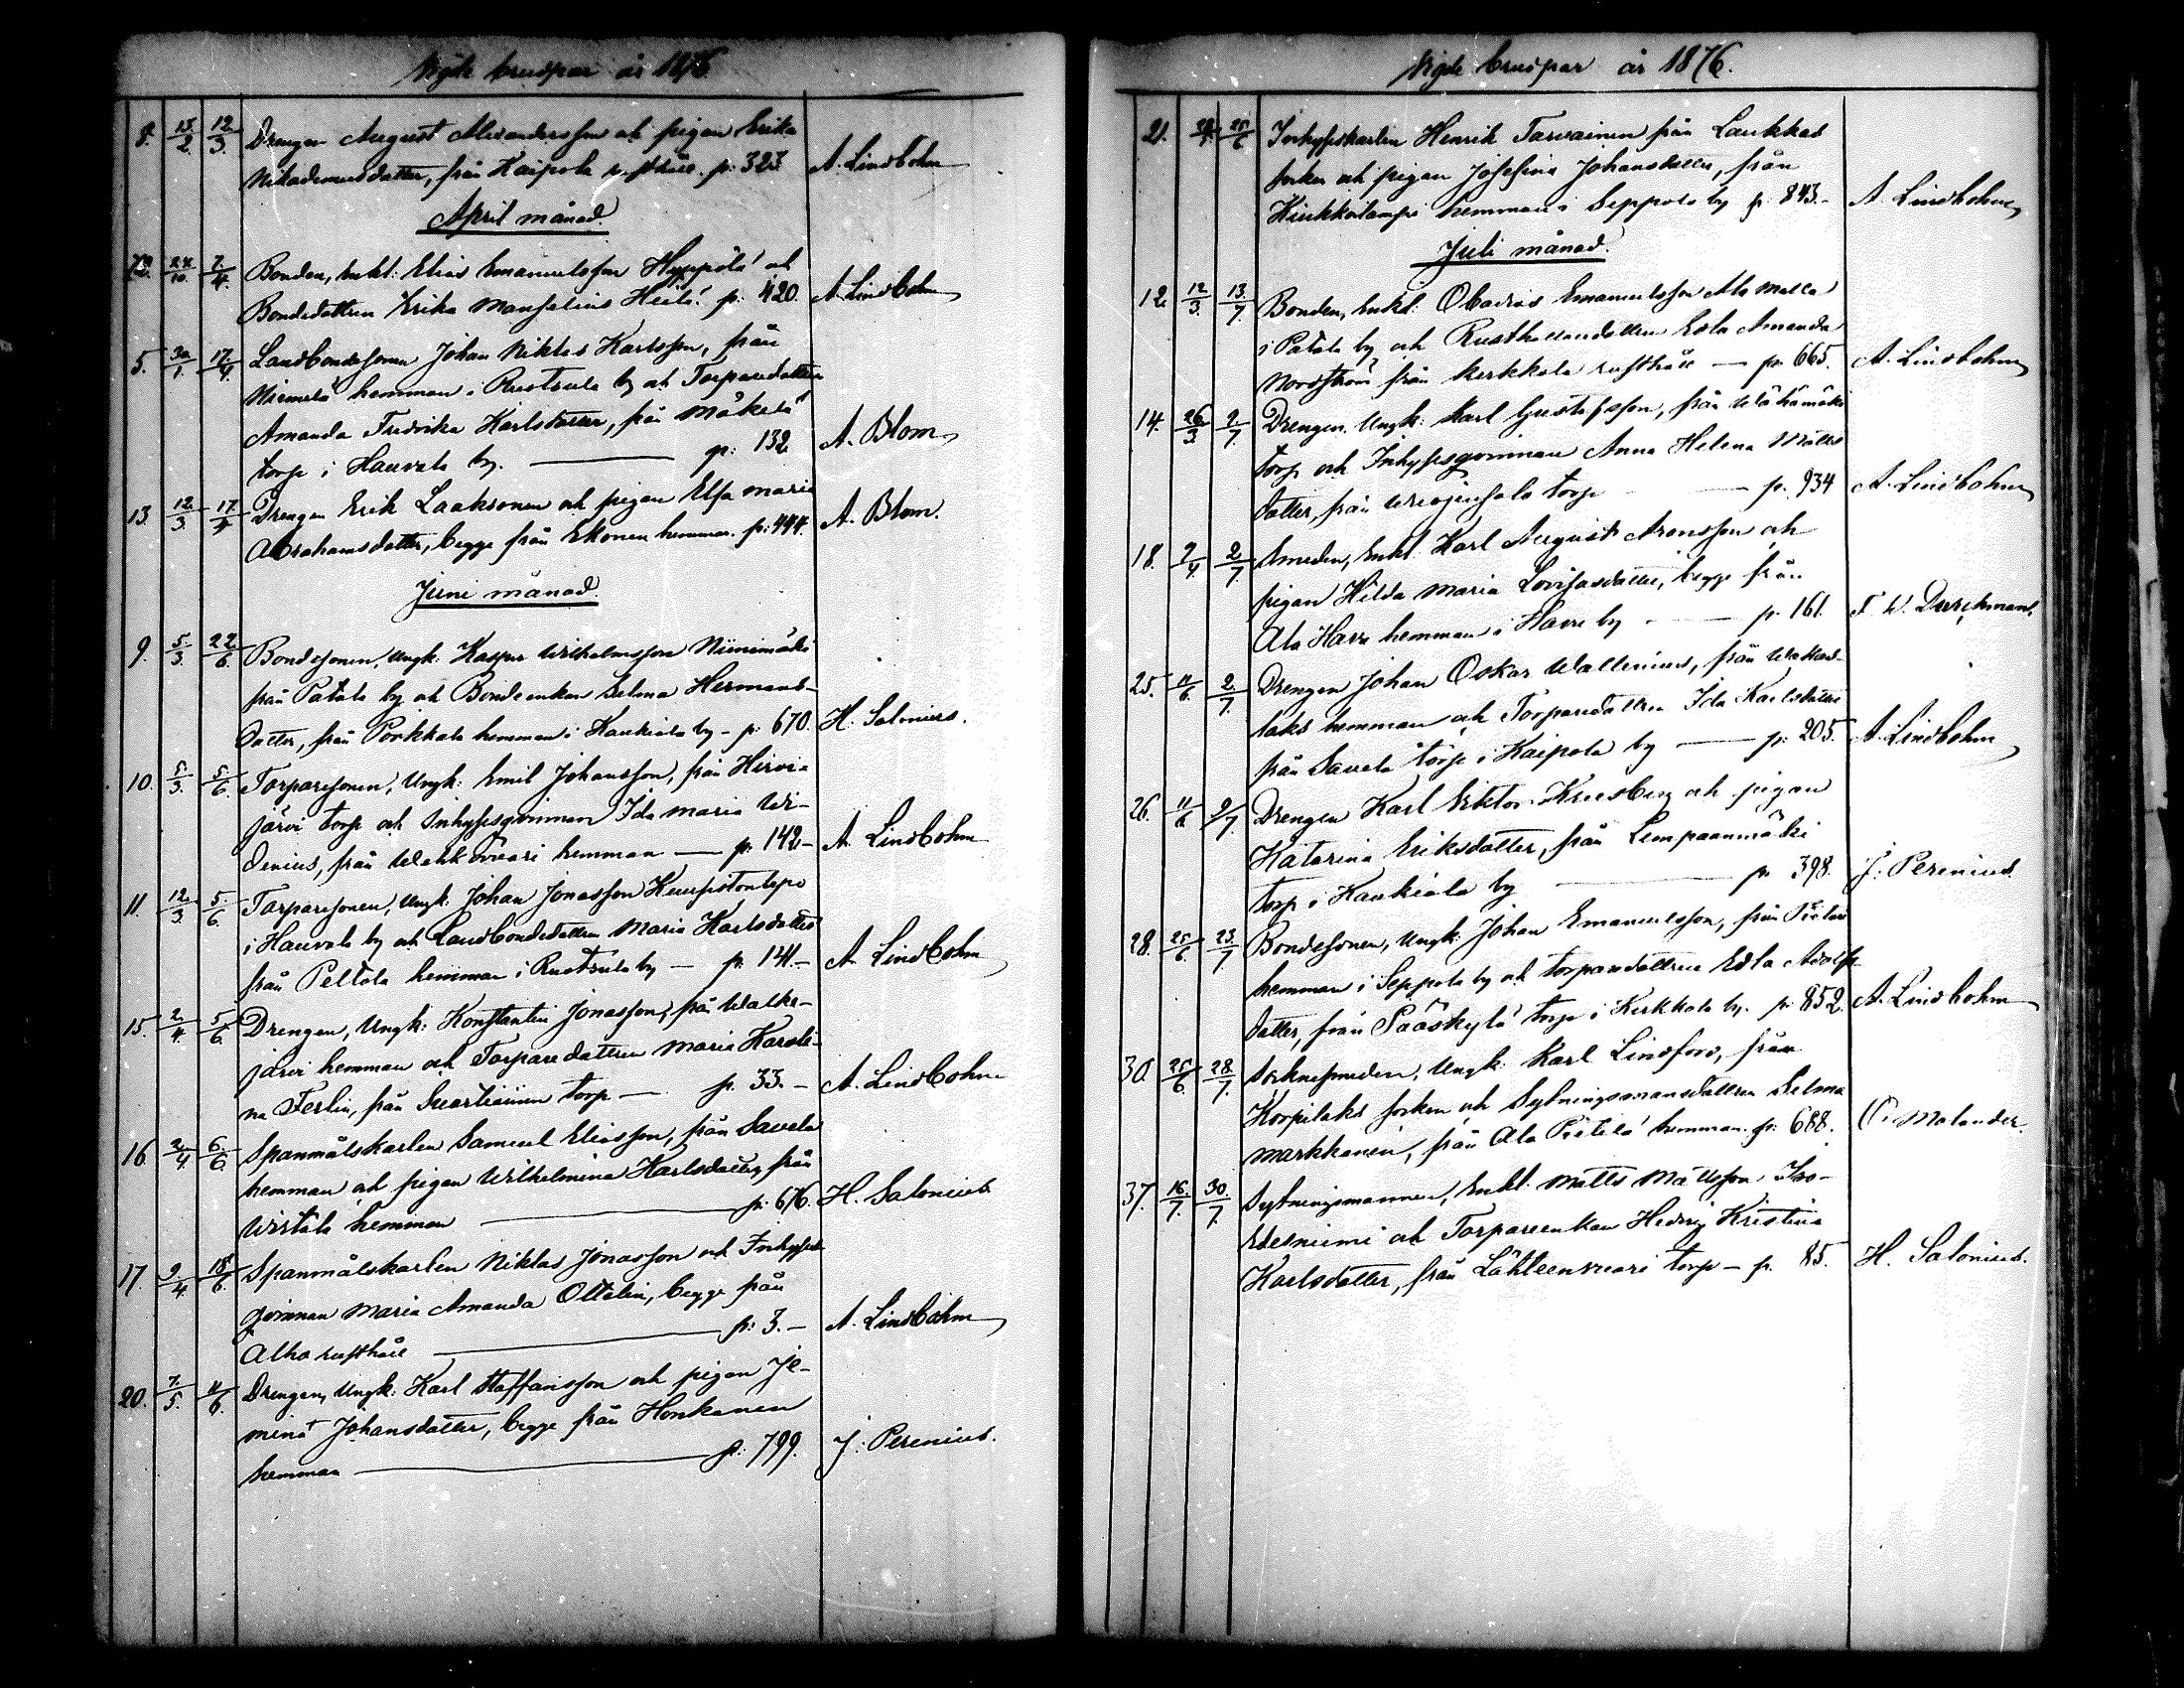 Vigde brudpar år 1876
8. 13/2 12/3. Drengen August Alexandersson och pigan Erika
Nikademusdatter, från Kaipola rusthåll. p. 323. A. Lindbohm
April månad.
72. 24/10. 2/4. Bonden, Enkl: Elias Emanuelsson Hyppölä och
Bondedattren Erika Mansalius Heilä. p: 420. A. Lindbohm
5. 30/1. 17/4. Landbondesonen Johan Niklas Karlsson, från
Niemelä hemman i Rustsula by och Torparedattren
Amanda Fredrika Karlsdatter, från Mäkelä
torp i Hauvala by. p: 132 A. Blom
13. 12/3 17/4 Drengen Erik Laaksonen och pigan Elsa Maria
Abrahamsdatter, begge från Ekonen hemman. p: 444. A. Blom.
Juni månad.
9. 5/3. 22/6. Bondesonen, Ungk: Kasper Wilhelmsson Niinimäki
från Patala by och Bondeenkan Selma Hermans-
datter, från Porkkala hemman i Kaukiala by - p: 670. H. Salonius.
10. 5/3. 5/6. Torparesonen, Ungk: Emil Johansson, från Hirvi-
järvi torp och Inhysesqvinnan Ida Maria Wi-
denius, från Wahkovuori hemman — p: 142 - A. Lindbohm
11. 12/3. 5/6. Torparesonen, Ungk: Johan Jonasson Kuusistontopo
i Hauvala by och Landbondedattren Maria Karlsdatter
från Peltola hemman i Rustsula by — p. 141. - A. Lindbohm
15. 2/4 5/6. Drengen, Ungk: Konstantin Jonasson, från Walke-
järvi hemman och Torparedattren Maria Karoli-
na Ferlin, från torp — p. 33. - A. Lindbohm
16. 2/4. 6/6. Spanmålskarlen Samuel Eliasson, från Savela
hemman och pigan Wilhelmina Karlsdatter, från
Wistala hemman p: 676. H. Salonius.
17. 9/4 18/6. Spanmålskarlen Niklas Jonasson och Inhyses
qvinnan Maria Amanda Ottelin, begge från
Alho rusthåll p: 3. - A. Lindbohm
20. 7/5. 11/6. Drengen, Ungk: Karl Staffansson och pigan Je-
mina Johansdatter, begge från Honkanen
hemman p: 799. J: Perenius.
Vigde brudpar år 1876.
21. 28/5 25/6 Inhyseskarlen Henrik Tarvainen från Laukkas
socken och pigan Josefina Johansdatter, från
Kiukkoilampi hemman i Seppola by p: 843. - A. Lindbohm
Juli månad.
12. 12/3. 13/7. Bonden, Enkl: Obadias Emanuelsson Ala Malla
i Patala by och Rusthållaredattren Edla Amanda
Nordström från Kerkkola rusthåll — p: 665. A. Lindbohm
14. 26/3. 2/7. Drengen, Ungk: Karl Gustafsson, från Wähämäki
torp och Inhysesqvinnan Anna Helena Matts
datter, från torp — p. 934 A. Lindbohm
18. 9/4. 2/7. Smeden, Enkl: Karl August Aronsson och
pigan Hilda Maria Lovisasdatter, begge från
Ala Havu hemman i Havu by — p. 161. F. W. Durchman.
25. 11/6. 2/7. Drengen Johan Oskar Wallenius, från
laks hemman och Torparedattren Ida Karlsdatter
från Savela torp i Kaipola by — p: 205. A. Lindbohm
26. 11/6 9/7. Drengen Karl Erktor Kreesberg och pigan
Katarina Eriksdatter, från Lempaanmäki
torp i Kaukiala by — p. 398. J: Perenius.
28. 25/6 23/7. Bondesonen, Ungk: Johan Emanuelsson, från
hemman i Seppola by och torparedattren Edla Adolfs-
datter, från Pääskylä torp i Kerkkola by. p: 852. A. Lindbohm
30. 25/6. 28/7. Sockensmeden, Ungk: Karl Lindfors, från
Korpilaks socken och Sytningsmansdattren Selma
Markkanen, från Ala Pietilä hemman. p: 688. O. Molander.
37. 16/7. 30/7. Sytningsmannen, Enkl: Matts Mattsson Iso-
Edesniemi och Torpareenkan Hedvig Kristina
Karlsdatter, från Lähteenvuori torp — p. 85. H. Salonius.